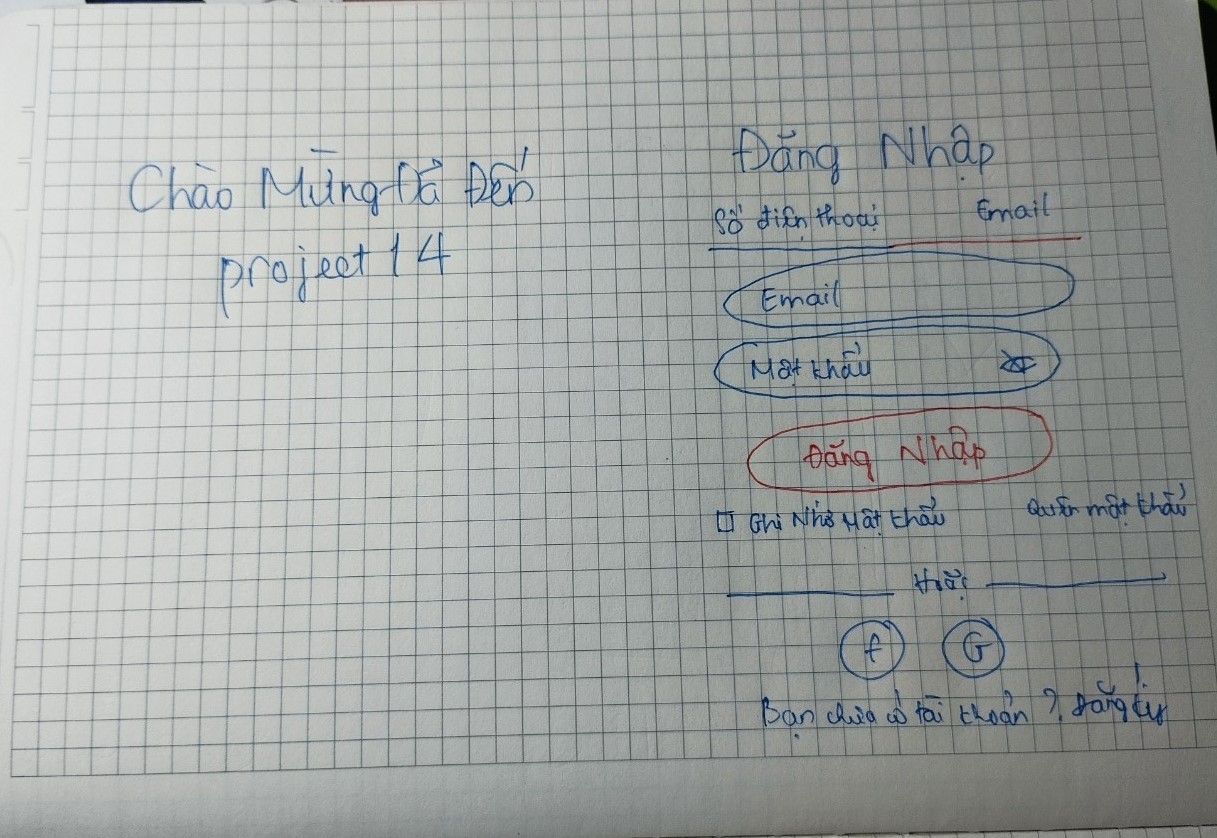 Chào Mừng Đã Đến
project 14
Đăng Nhập
Số điện thoại Email
Email
Mật khẩu
Đăng Nhập
Ghi Nhớ Mật khẩu Quên mật khẩu
Hoặc
f G
Bạn chưa có tài khoản ? Đăng ký